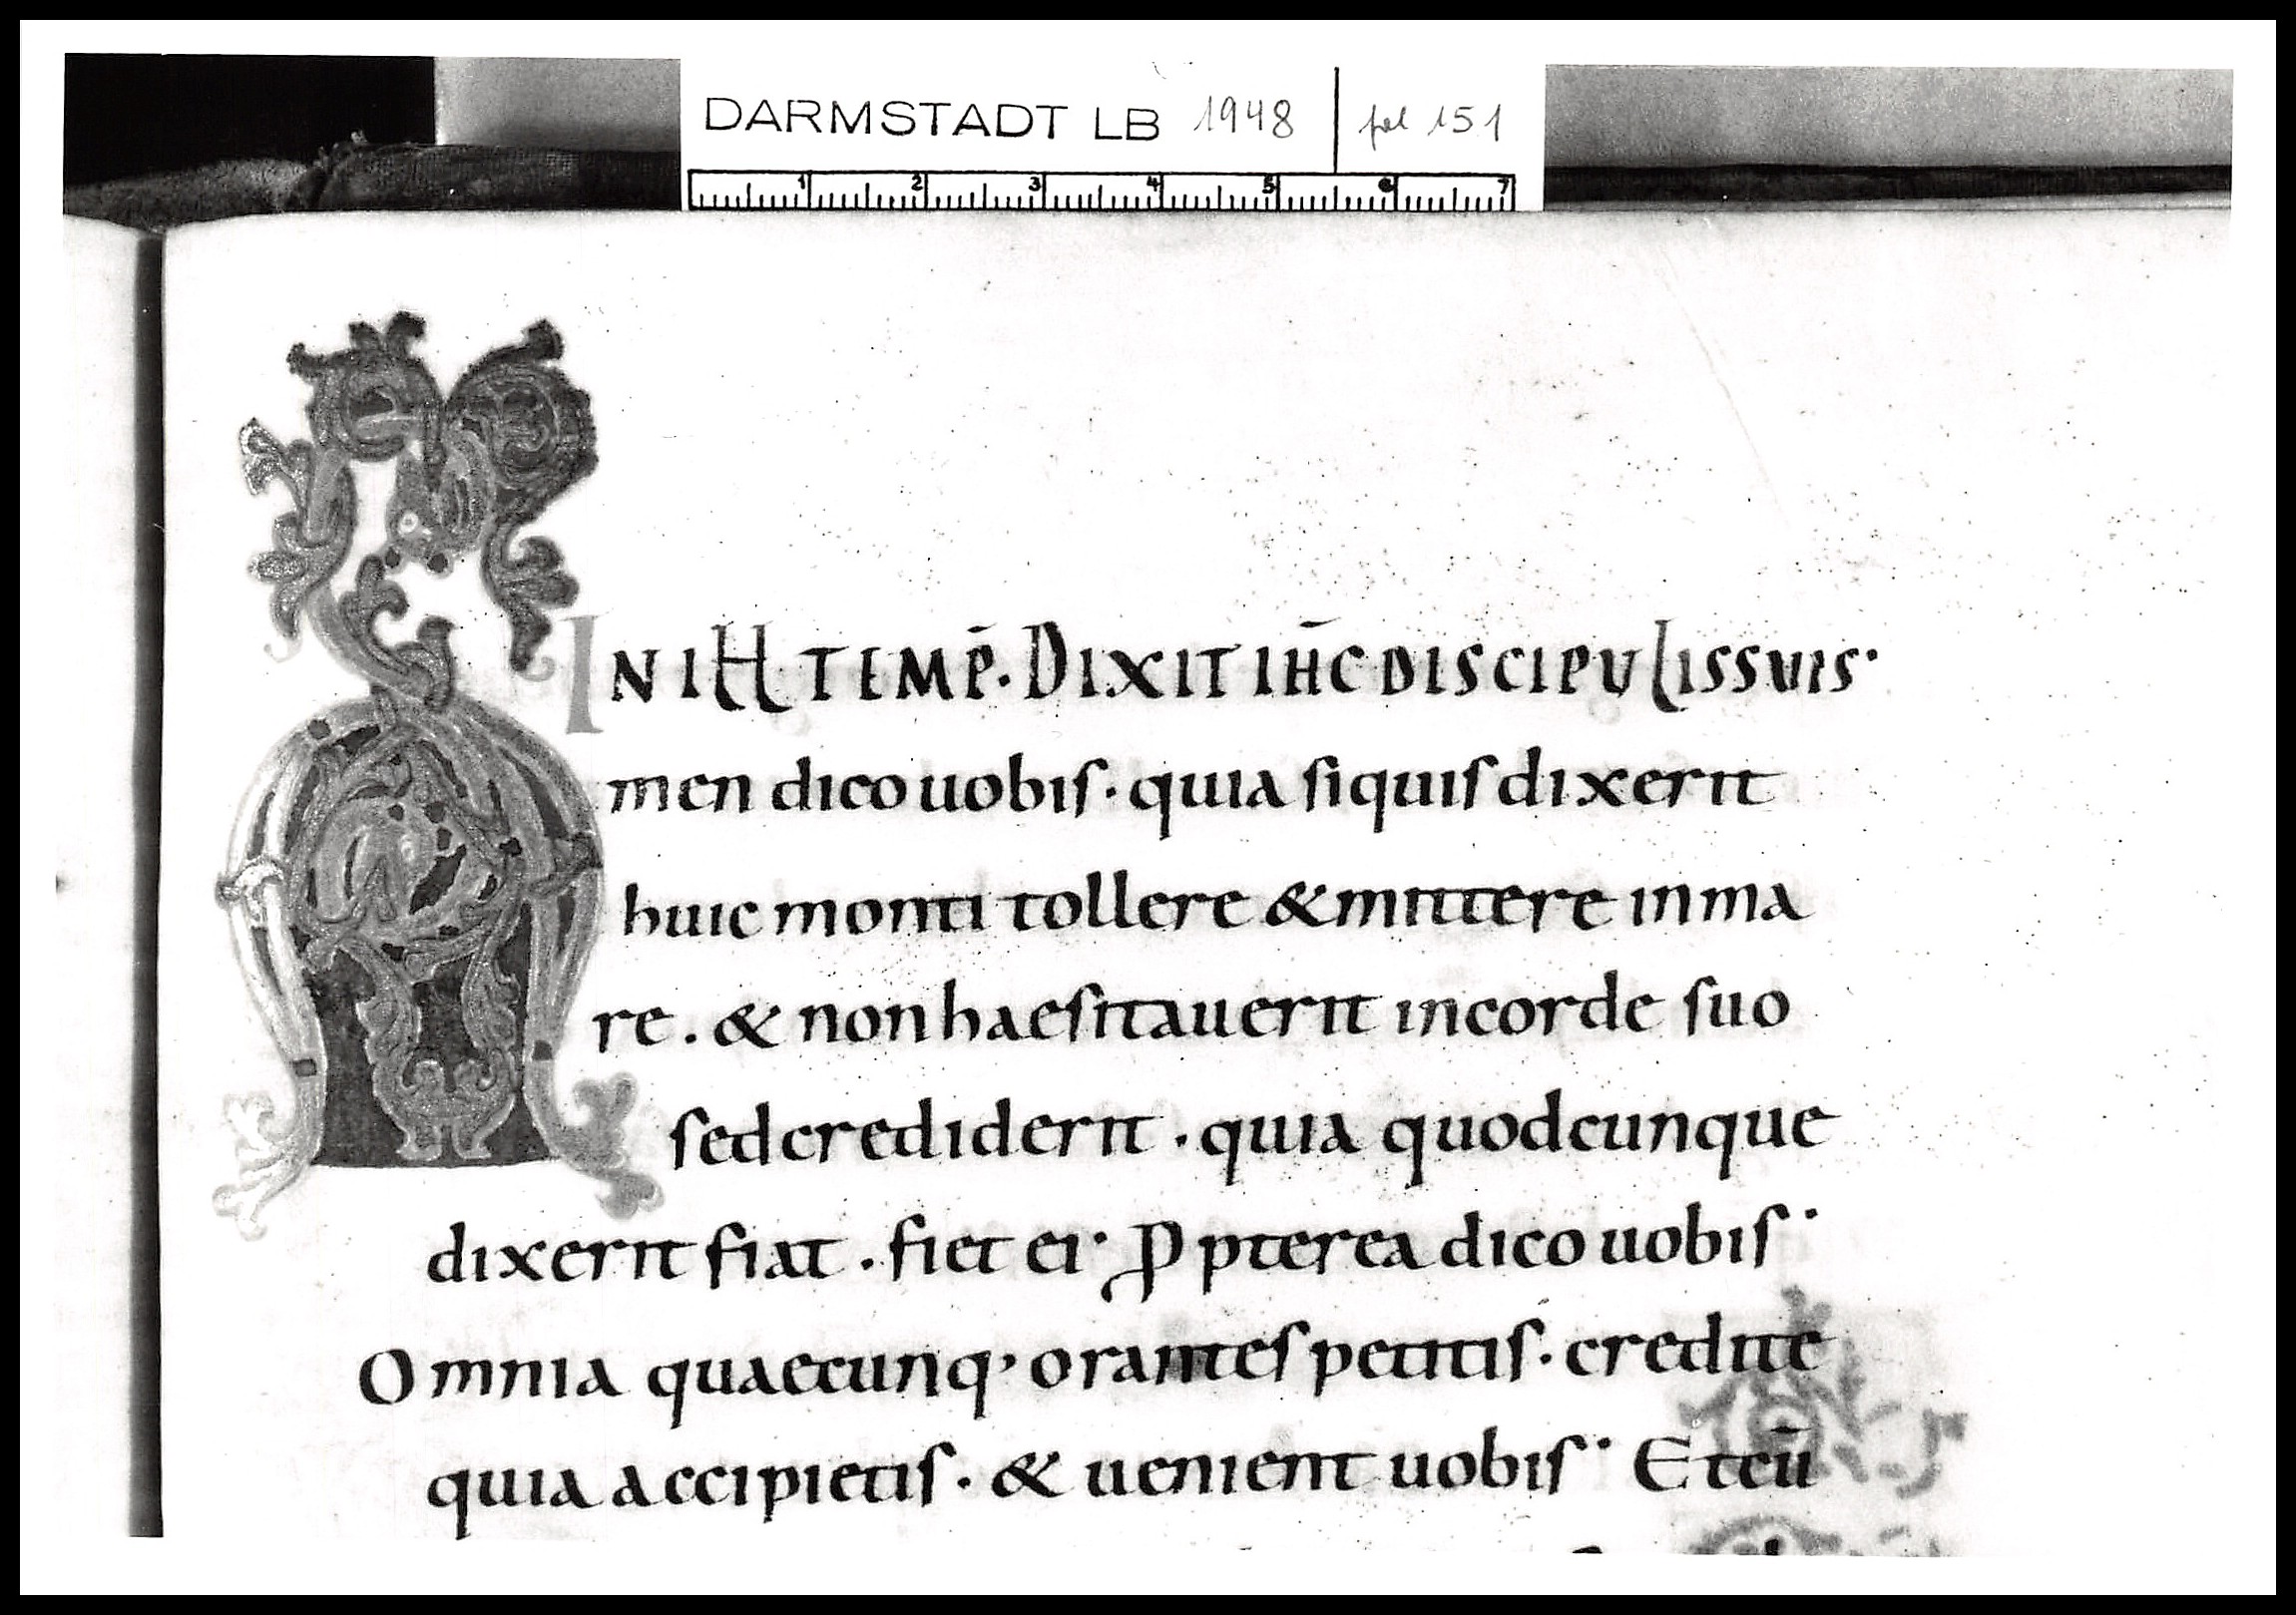 DARMSTADT LB 1948 | fol 151
1 2 3 4 5 6 7
IN ILL TEMP̄. DIXIT IH̄C DISCIPULIS SUIS·
Amen dico uobis· quia siquis dixerit
huic monti tollere & mittere in ma
re. & non haesitauerit incorde suo
sed crediderit· quia quodcunque
dixerit fiat. fiet ei· Ꝓpterea dico uobis·
Omnia quaecunq· orantes petitis· credite
quia accipietis. & uenient uobis· Et cū